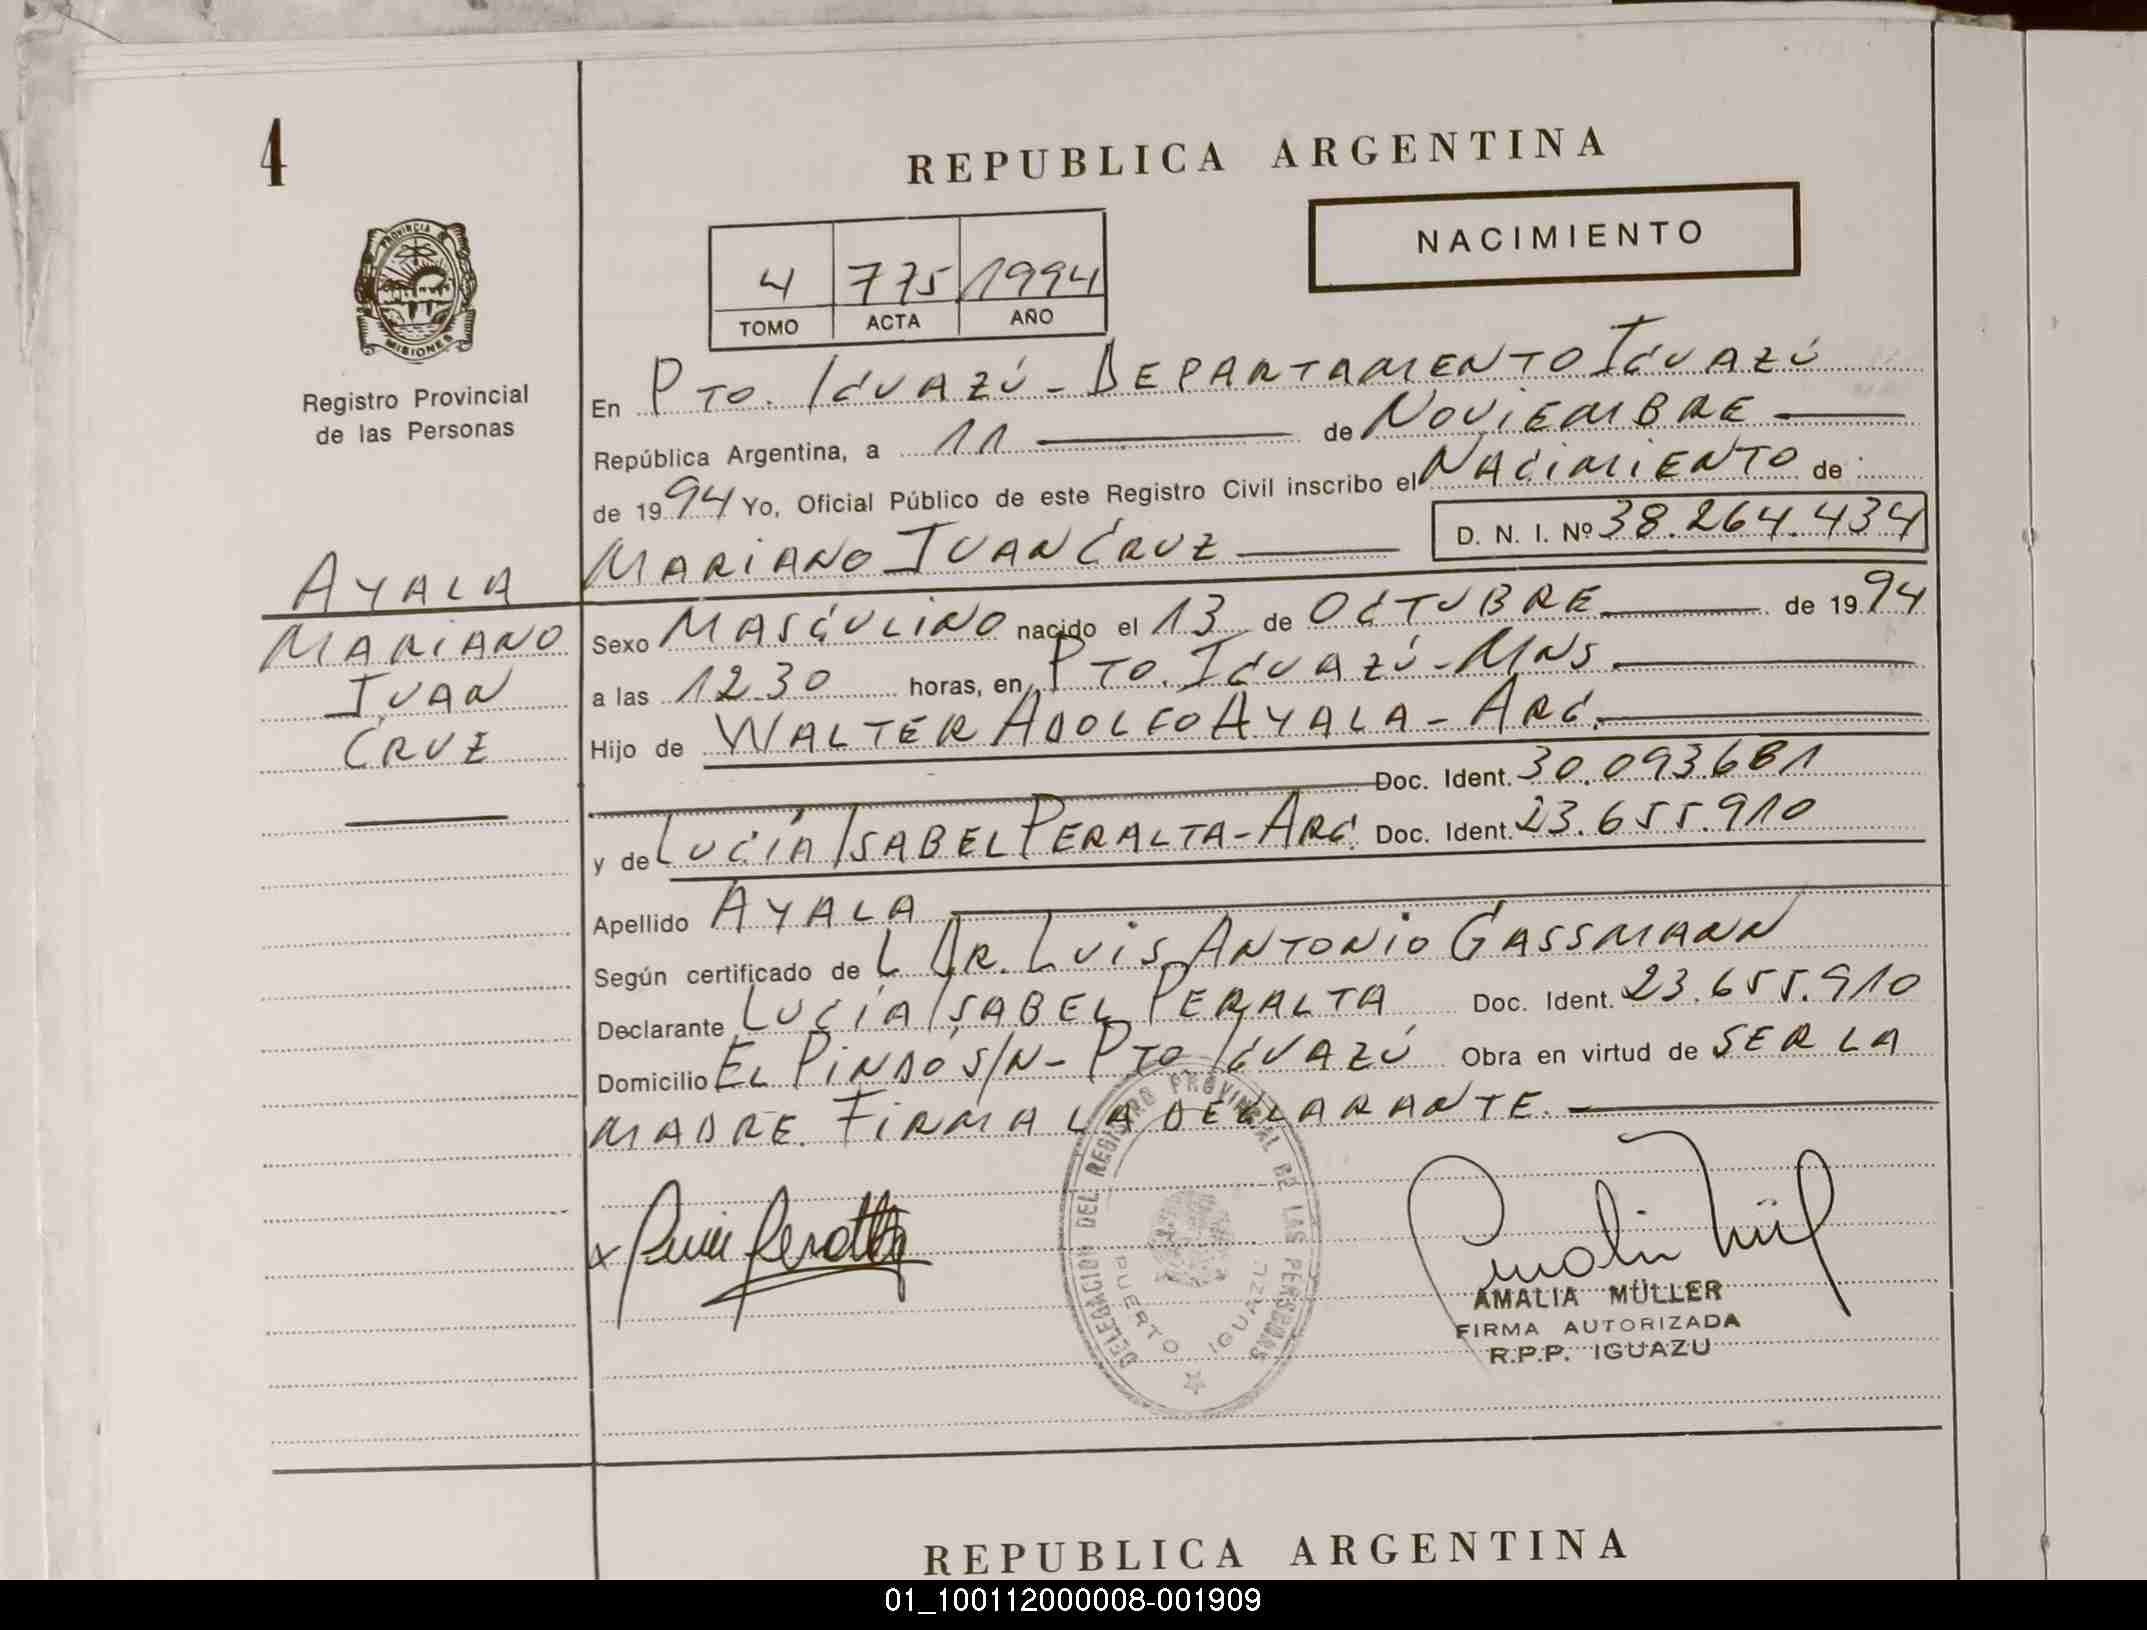 4
REPUBLICA ARGENTINA
NACIMIENTO
4 775 1994
TOMO ACTA AÑO
PROVINCIA DE
MISIONES
Registro Provincial
de las Personas
En PTO. IGUAZÚ - DEPARTAMENTO IGUAZÚ
República Argentina, a 11 de NOVIEMBRE
de 1994 Yo, Oficial Público de este Registro Civil inscribo el NACIMIENTO de
MARIANO IVAN CRUZ D. N. I. Nº 38.264.434
AYALA
MARIANO
IVAN
CRUZ
Sexo MASCULINO nacido el 13 de OCTUBRE de 1994
a las 12.30 horas, en PTO. IGUAZÚ - MNS
Hijo de WALTER ADOLFO AYALA - ARG.
Doc. Ident. 30.093681
y de LUCÍA ISABEL PERALTA - ARG. Doc. Ident. 23.655.910
Apellido AYALA
Según certificado de L DR. LUIS ANTONIO GASSMANN
Declarante LUCÍA ISABEL PERALTA Doc. Ident. 23.655.910
Domicilio EL PINDÓ S/N - PTO IGUAZÚ Obra en virtud de SER LA
MADRE. FIRMA LA DECLARANTE.
DELEGACION DEL REGISTRO PROVINCIAL DE LAS PERSONAS
PUERTO IGUAZU
AMALIA MÜLLER
FIRMA AUTORIZADA
R.P.P. IGUAZU
REPUBLICA ARGENTINA
01_100112000008-001909